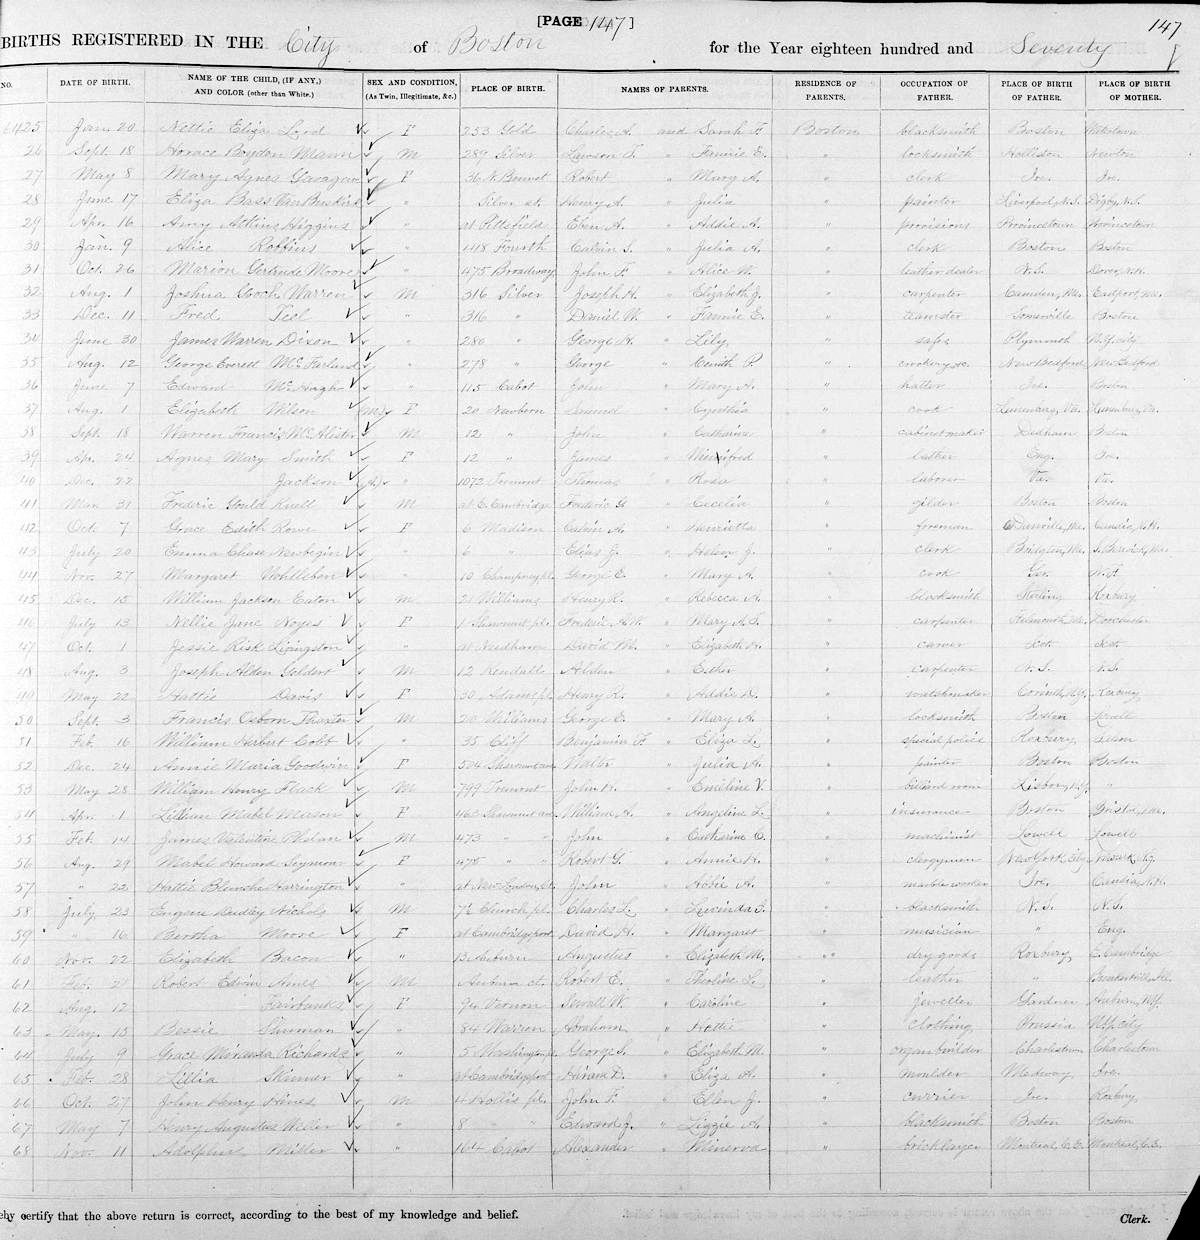 [PAGE 147]
147
BIRTHS REGISTERED IN THE City of Boston for the Year eighteen hundred and Seventy
NO. DATE OF BIRTH. NAME OF THE CHILD, (IF ANY,) AND COLOR (other than White.) SEX AND CONDITION, (As Twin, Illegitimate, &c.) PLACE OF BIRTH. NAMES OF PARENTS. RESIDENCE OF PARENTS. OCCUPATION OF FATHER. PLACE OF BIRTH OF FATHER. PLACE OF BIRTH OF MOTHER.
6425 Jan. 20 Nettie Eliza Lord F 253 Gold Charles A. and Sarah F. Boston blacksmith Boston
26 Sept. 18 Horace Boyden Mann M 289 Silver Lawson T. " Fannie E. " locksmith Holliston Newton
27 May 8 Mary Agnes F 36 N. Bennet Robert " Mary A. " clerk Ire. Ire.
28 June 17 Eliza Bass Van Buskirk " Silver st. Henry A. " Julia " painter Liverpool, N.S. Digby, N.S.
29 Apr. 16 Atkins Higgins " at Pittsfield Eben A. " Addie A. " provisions Provincetown Provincetown
30 Jan. 9 Alice Robbins " 418 Fourth Calvin S. " Julia A. " clerk Boston Boston
31 Oct. 26 Marion Gertrude Moore " 475 Broadway John F. " Alice W. " leather dealer N.S. Dover, N.H.
32 Aug. 1 Joshua Gooch Warren M 316 Silver Joseph H. " Elizabeth J. " carpenter Camden, Me. Eastport, Me.
33 Dec. 11 Fred Teel " 316 " Daniel W. " Fannie E. " teamster Somerville Boston
34 June 30 James Warren Dixon " 280 " George H. " Lily " safes Plymouth N.Y. city
35 Aug. 12 George Everett McFarland " 278 " George " P. " crockery &c. New Bedford New Bedford
36 June 7 Edward McHugh " 115 Cabot John " Mary A. " hatter Ire. Boston
37 Aug. 1 Elizabeth Wilson F 20 Newbern Samuel " Cynthia " cook Lunenburg, Va. Lunenburg, Va.
38 Sept. 18 Warren Francis McAlister M 12 " John " Catharine " cabinet maker Dedham Boston
39 Apr. 24 Agnes Mary Smith F 12 " James " Winnifred " Eng. Ire.
40 Dec. 22 Jackson " 1072 Tremont Thomas " Rosa " laborer Va. Va.
41 Mar. 31 Frederic Gould M at E. Cambridge Frederic G. " Cecelia " gilder Boston Boston
42 Oct. 7 Grace Edith Rowe F 6 Madison Calvin A. " Henrietta " foreman Danville, Me. Candia, N.H.
43 July 20 Emma Chase Newbegin " 6 " Elias J. " Helen J. " clerk S. Berwick, Me.
44 Nov. 27 Margaret " 10 Champney pl. George E. " Mary A. " cook Ger.
45 Dec. 15 William Jackson Eaton M 21 Williams Henry R. " Rebecca A. " blacksmith Sterling Roxbury
46 July 13 Nellie Jane Noyes F 1 Shawmut pl. " Mary A. S. " carpenter Dorchester
47 Oct. 1 Jessie Risk Livingston " at Needham David M. " Elizabeth " carver Scot. Scot.
48 Aug. 3 Joseph Alden Goldert M 12 Kendall Alden " Esther " carpenter N.S. N.S.
49 May 22 Hattie Davis F 30 Adams pl. Henry R. " Addie " watchmaker Roxbury
50 Sept. 3 Francis Osborn Thaxter M 20 Williams George E. " Mary A. " locksmith Boston Lowell
51 Feb. 16 William Herbert Cobb " 35 Cliff Benjamin F. " Eliza L. " special police Roxbury
52 Dec. 24 Annie Maria Goodwin F 504 Shawmut ave. Walter " Julia A. " painter Boston Boston
53 May 28 William Henry Flack M 799 Tremont John " Emeline V. " billiard room "
54 Apr. 1 Lillian Mabel Mason F 462 Shawmut ave. William A. " Angeline L. " insurance Boston Bristol, Me.
55 Feb. 14 James Valentine Phelan M 473 " " John " Catharine C. " machinist Lowell Lowell
56 Aug. 29 Mabel Howard Seymour F 475 " " Robert G. " Annie " clergyman New York City Newark, N.J.
57 " 22 Hattie Blanche Harrington " at New London, Ct. John " Abbie A. " marble worker Ire. Candia, N.H.
58 July 23 Eugene Dudley Nichols M 7½ Church pl. Charles L. " Lucinda S. " blacksmith N.S. N.S.
59 " 16 Bertha Moore F at Cambridgeport David " Margaret " musician " Eng.
60 Nov. 22 Elizabeth Bacon " Auburn Augustus " Elizabeth M. " dry goods Roxbury E. Cambridge
61 Feb. 21 Robert Edwin M Auburn ct. Robert E. " L. " leather "
62 Aug. 12 Fairbanks F 94 Vernon Sewall W. " Caroline " jeweller Gardner Auburn, N.Y.
63 May 15 Bessie Shuman " 84 Warren Abraham " Hettie " clothing Prussia N.Y. city
64 July 9 Grace Minerva Richards " 5 Washington George S. " Elizabeth M. " organ builder Charlestown Charlestown
65 Feb. 28 Lillia Skinner " at Cambridgeport Hiram D. " Eliza A. " moulder Medway Ire.
66 Oct. 27 John Henry Hines M 4 Hollis pl. John T. " Ellen J. " currier Ire. Roxbury
67 May 7 Henry Augustus " 8 " " Edward J. " Lizzie A. " blacksmith Boston Boston
68 Nov. 11 Adolphus Miller " 164 Cabot Alexander " Minerva " bricklayer Montreal, C.E. Montreal, C.E.
eby certify that the above return is correct, according to the best of my knowledge and belief.
Clerk.